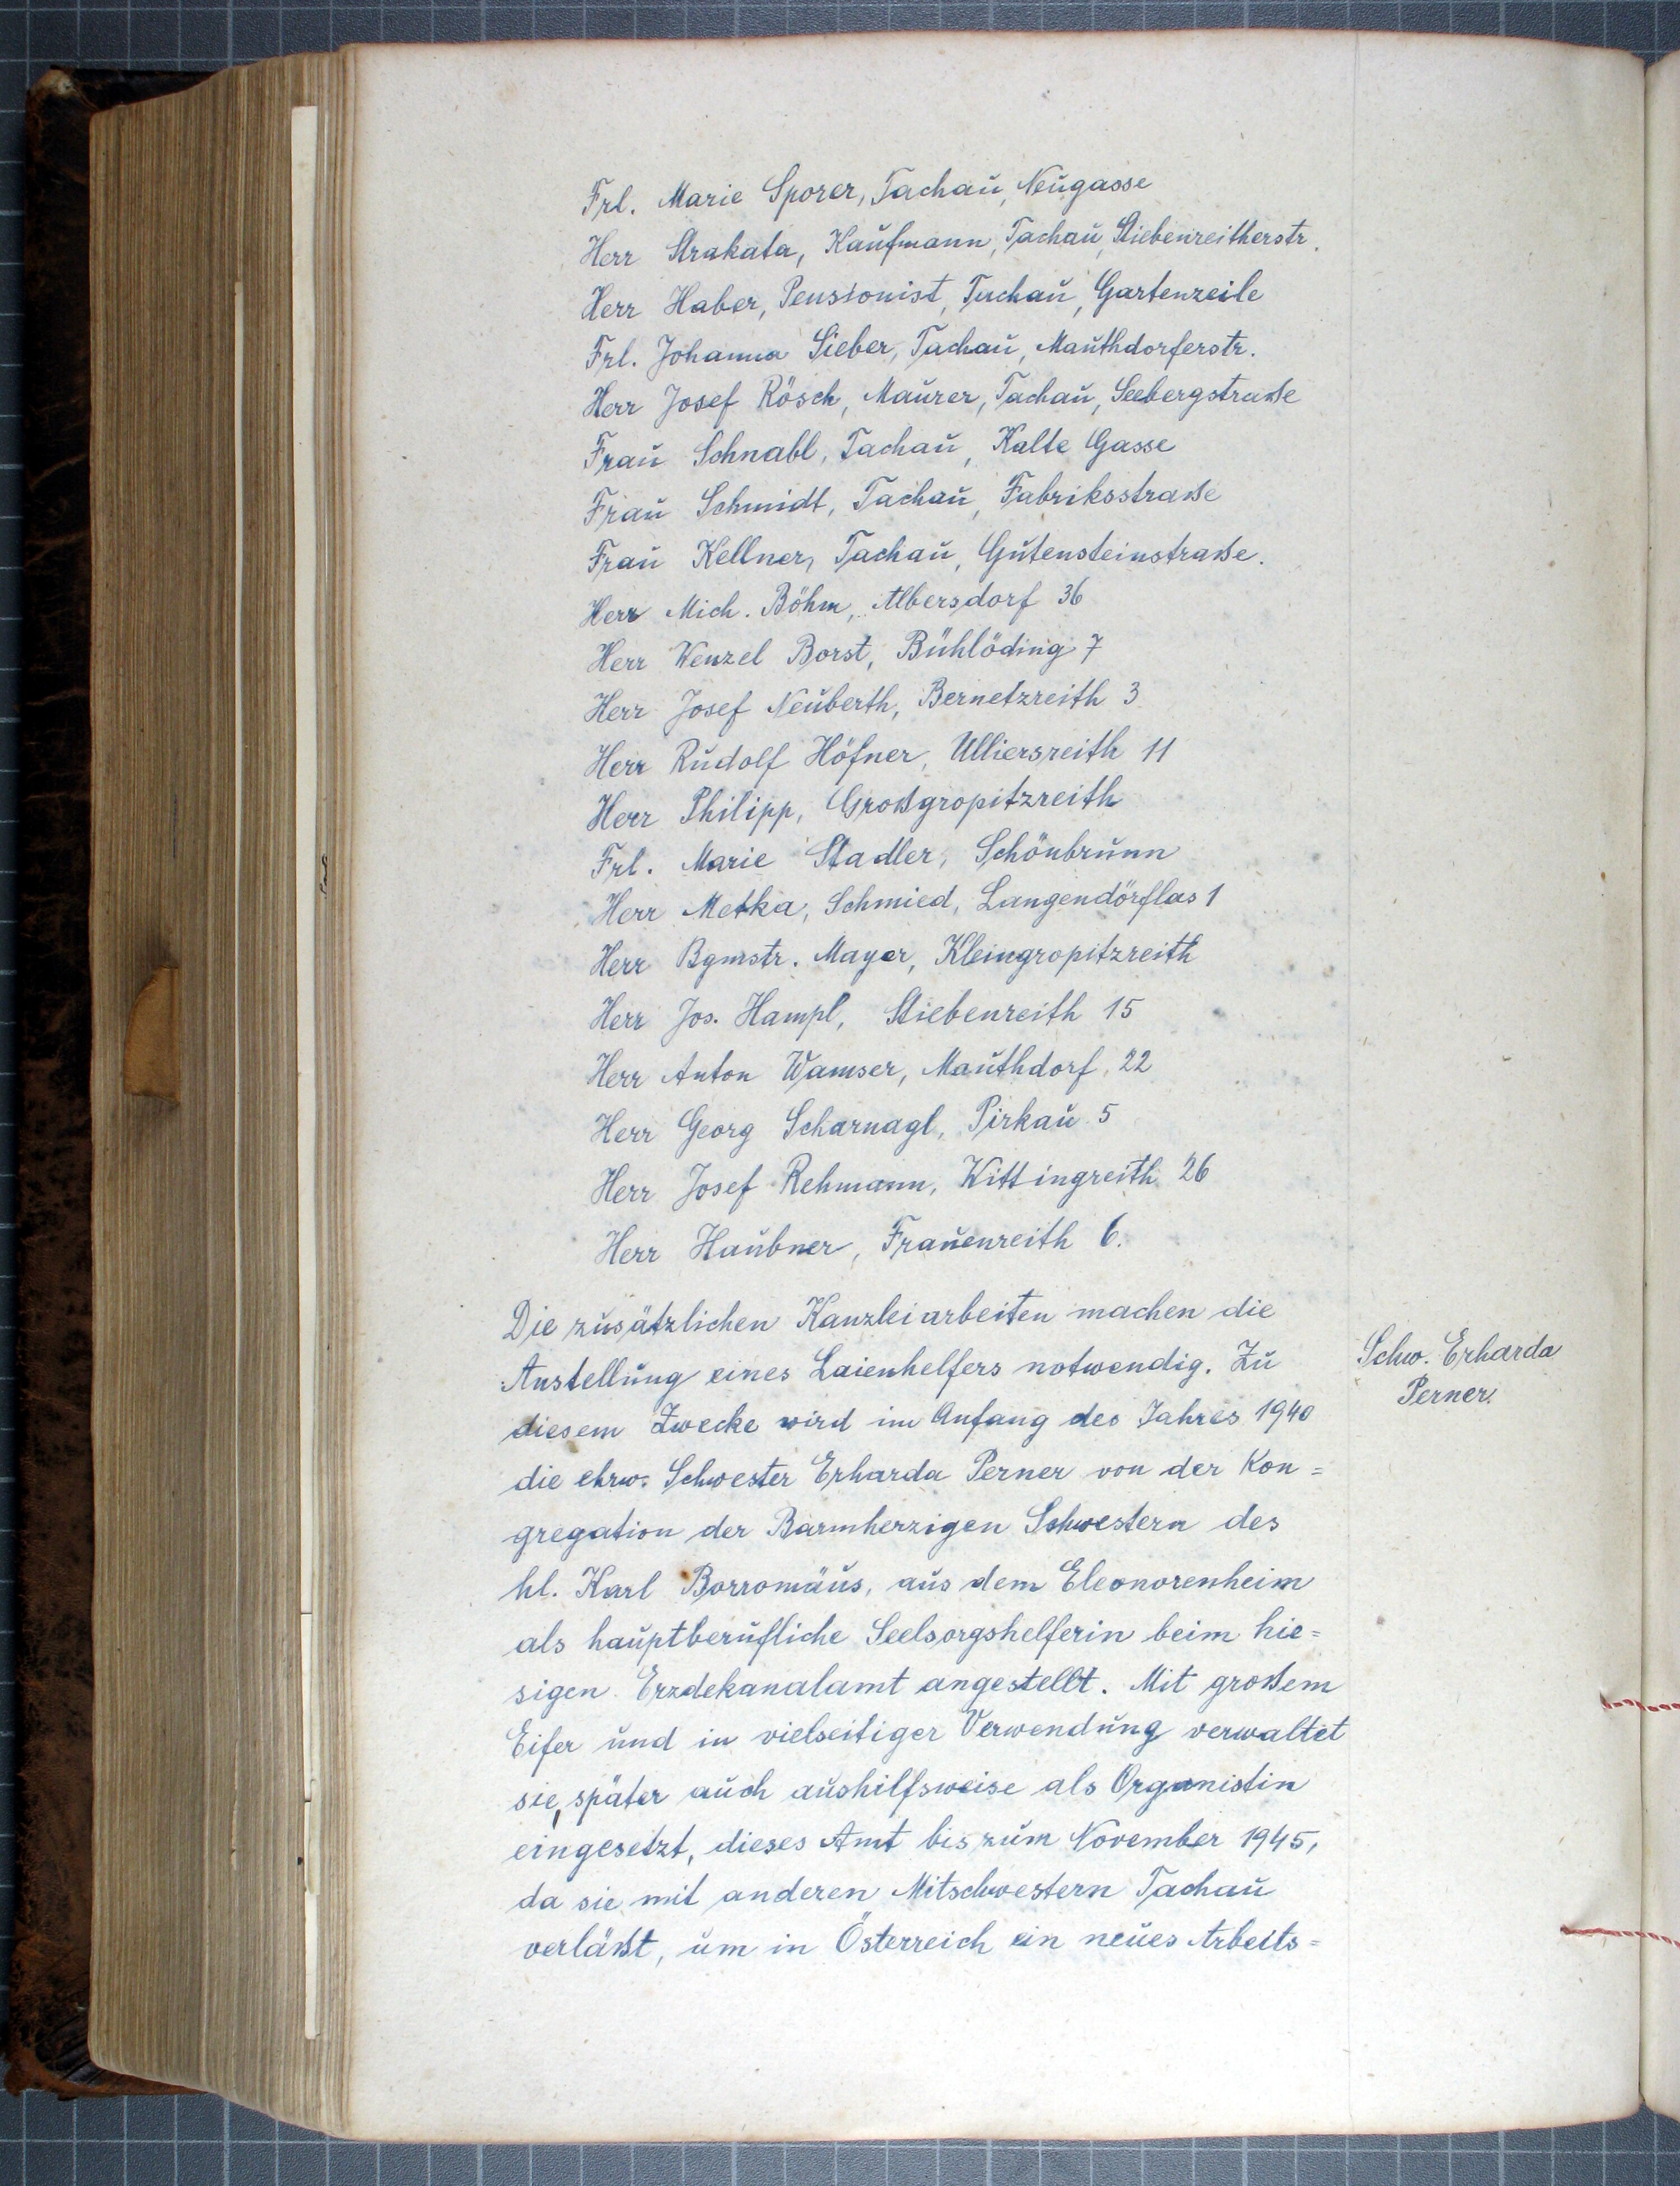 Frl. Marie Sporer, Tachau, Neugasse
Herr Strakata, Kaufmann, Tachau, Stiebenreitherstr.
Herr Haber, Pensionist, Tachau, Gartenzeile
Frl. Johanna Sieber, Tachau, Mauthdorferstr.
Herr Josef Rösch, Maurer, Tachau, Seebergstraße
Frau Schnabl, Tachau, Kalte Gasse
Frau Schmidt, Tachau, Fabriksstraße
Frau Kellner, Tachau, Gutensteinstraße.
Herr Mich. Böhm, Albersdorf 36
Herr Wenzel Borst, Bühlöding 7
Herr Josef Neuberth, Bernetzreith 3
Herr Rudolf Höfner, Ulliersreith 11
Herr Philipp, Großgropitzreith
Frl. Marie Stadler, Schönbrunn
Herr Metka, Schmied, Langendörflas 1
Herr Bgmstr. Mayer, Kleingropitzreith
Herr Jos. Hampl, Stiebenreith 15
Herr Anton Wamser, Mauthdorf, 22
Herr Georg Scharnagl, Pirkau 5
Herr Josef Rehmann, Wittingreith 26
Herr Haubner, Frauenreith 6.
Die zusätzlichen Kanzleiarbeiten machen die
Anstellung eines Laienhelfers notwendig. Zu
diesem Zwecke wird im Anfang des Jahres 1940
die ehrw. Schwester Erharda Perner von der Kon=
gregation der Barmherzigen Schwestern des
hl. Karl Borromäus, aus dem Eleonorenheim
als hauptberufliche Seelsorgshelferin beim hie=
sigen Erzdekanalamt angestellt. Mit großem
Eifer und in vielseitiger Verwendung verwaltet
sie, später auch aushilfsweise als Organistin
eingesetzt, dieses Amt bis zum November 1945,
da sie mit anderen Mitschwestern Tachau
verläßt, um in Österreich ein neues Arbeits=
Schw. Erharda
Perner.